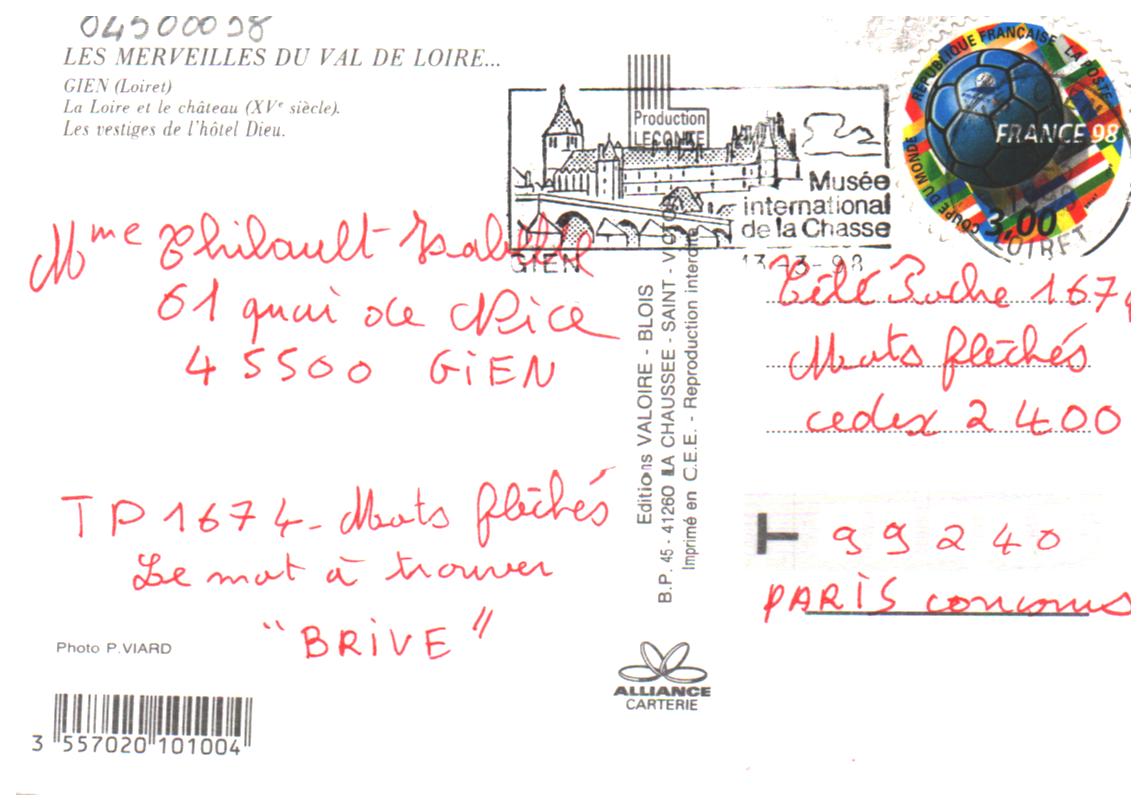 04500098
LES MERVEILLES DU VAL DE LOIRE...
GIEN (Loiret)
La Loire et le château (XVe siècle).
Les vestiges de l'hôtel Dieu.
Mme Thibault Isabelle
61 quai de Nice
45500 GiEN
TP 1674 - Mots fléchés
Le mot à trouver
"BRiVE"
Photo P.VIARD
3 557020 101004
Production
LECONTE
Musée
international
de la Chasse
GIEN
13-3-98
Editions VALOIRE - BLOIS
B.P. 45 - 41260 LA CHAUSSEE - SAINT - VICTOR
Imprimé en C.E.E. - Reproduction interdite
ALLIANCE
CARTERIE
REPUBLIQUE FRANÇAISE LA POSTE
FRANCE 98
COUPE DU MONDE
3,00
LOIRET
Télé Poche 1674
Mots fléchés
cedex 2400
T 99240
PARiS concours